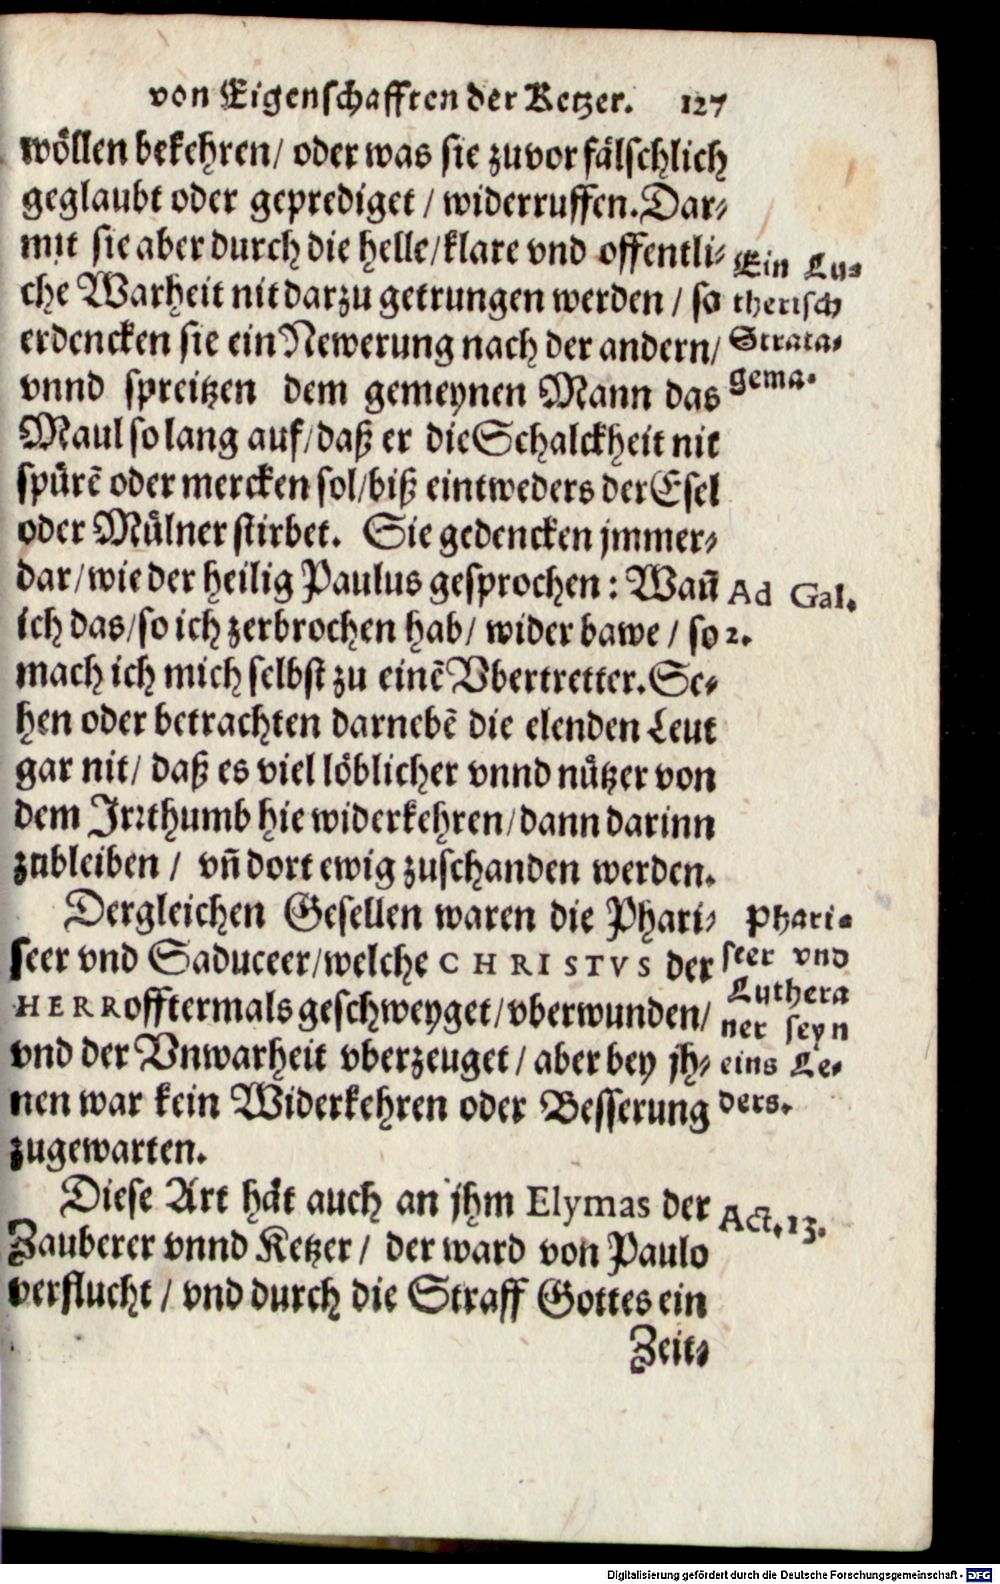 von Eigenschafften der Ketzer. 127
wöllen bekehren/ oder was sie zuvor fälschlich
geglaubt oder geprediget / widerruffen. Dar⸗
mit sie aber durch die helle/klare vnd offentli⸗
che Warheit nit darzu getrungen werden / so
erdencken sie ein Newerung nach der andern/
vnnd spreitzen dem gemeynen Mann das
Maul so lang auf/daß er die Schalckheit nit
spürẽ oder mercken sol/biß eintweders der Esel
oder Mülner stirbet. Sie gedencken jmmer⸗
dar/wie der heilig Paulus gesprochen: Wañ
ich das/so ich zerbrochen hab/ wider bawe / so
mach ich mich selbst zu einẽ Vbertretter. Se⸗
hen oder betrachten darnebẽ die elenden Leut
gar nit/ daß es viel löblicher vnnd nützer von
dem Irrthumb hie widerkehren/dann darinn
zubleiben / vñ dort ewig zuschanden werden.
Dergleichen Gesellen waren die Phari⸗
seer vnd Saduceer/welche CHRISTVS der
HERR offtermals geschweyget/vberwunden/
vnd der Vnwarheit vberzeuget / aber bey jh⸗
nen war kein Widerkehren oder Besserung
zugewarten.
Diese Art hät auch an jhm Elymas der
Zauberer vnnd Ketzer / der ward von Paulo
verflucht / vnd durch die Straff Gottes ein
Zeit⸗
Ein Lu⸗
therisch
Strata⸗
gema.
Ad Gal.
2.
Phari⸗
seer vnd
Luthera
ner seyn
eins Le⸗
ders.
Act. 13.
Digitalisierung gefördert durch die Deutsche Forschungsgemeinschaft - DFG